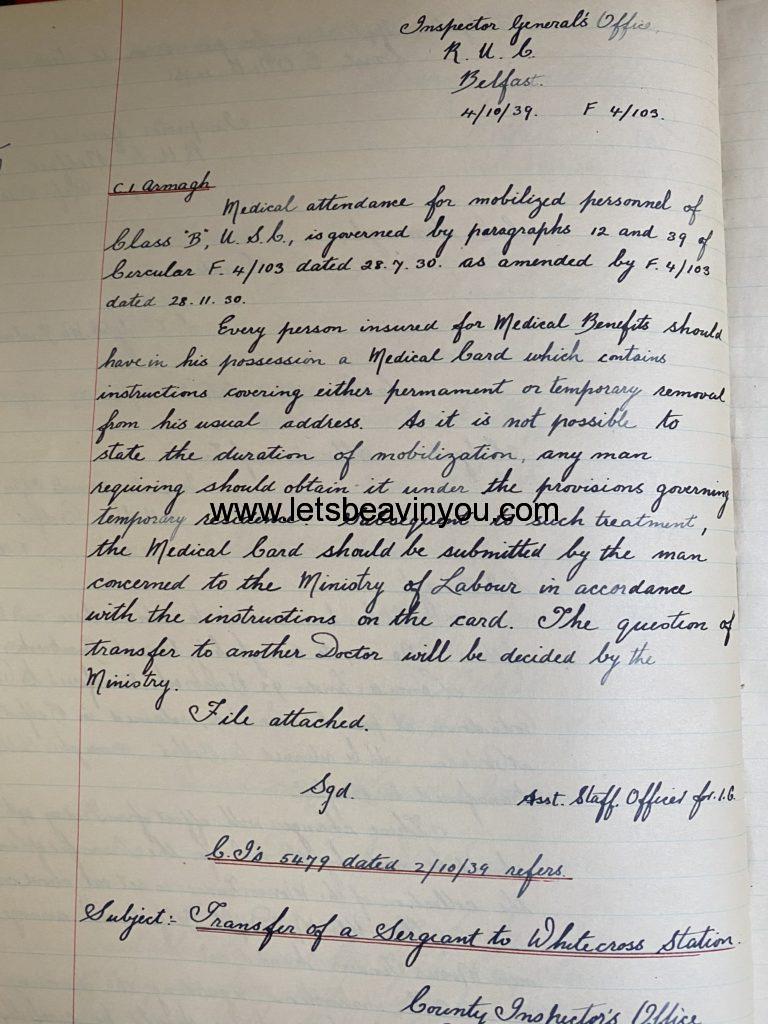 Inspector General's Office,
R. U. C.
Belfast.
4/10/39. F 4/103.
C.I. Armagh
Medical attendance for mobilized personnel of
Class "B", U. S. C., is governed by paragraphs 12 and 39 of
Circular F. 4/103 dated 28.7.30. as amended by F. 4/103
dated 28.11.30.
Every person insured for Medical Benefits should
have in his possession a Medical Card which contains
instructions covering either permament or temporary removal
from his usual address. As it is not possible to
state the duration of mobilization, any man
requiring should obtain it under the provisions governing
temporary residence. Subsequent to such treatment,
www.letsbeavinyou.com
the Medical Card should be submitted by the man
concerned to the Ministry of Labour in accordance
with the instructions on the card. The question of
transfer to another Doctor will be decided by the
Ministry.
File attached.
Sgd. Asst. Staff Officer for I.G.
C.I's 5479 dated 2/10/39 refers.
Subject:- Transfer of a Sergeant to Whitecross Station.
County Inspector's Office